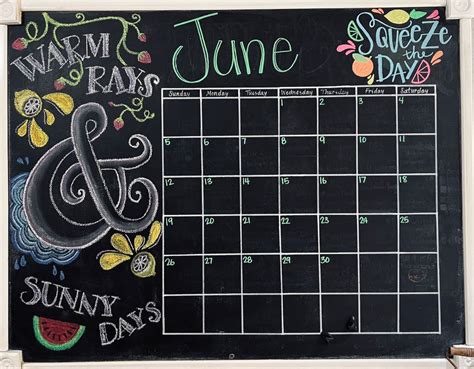 June
WARM
RAYS
&
SUNNY
DAYS
SQUEEZE
the
DAY
Sunday Monday Tuesday Wednesday Thursday Friday Saturday
1 2 3 4
5 6 7 8 9 10 11
12 13 14 15 16 17 18
19 20 21 22 23 24 25
26 27 28 29 30